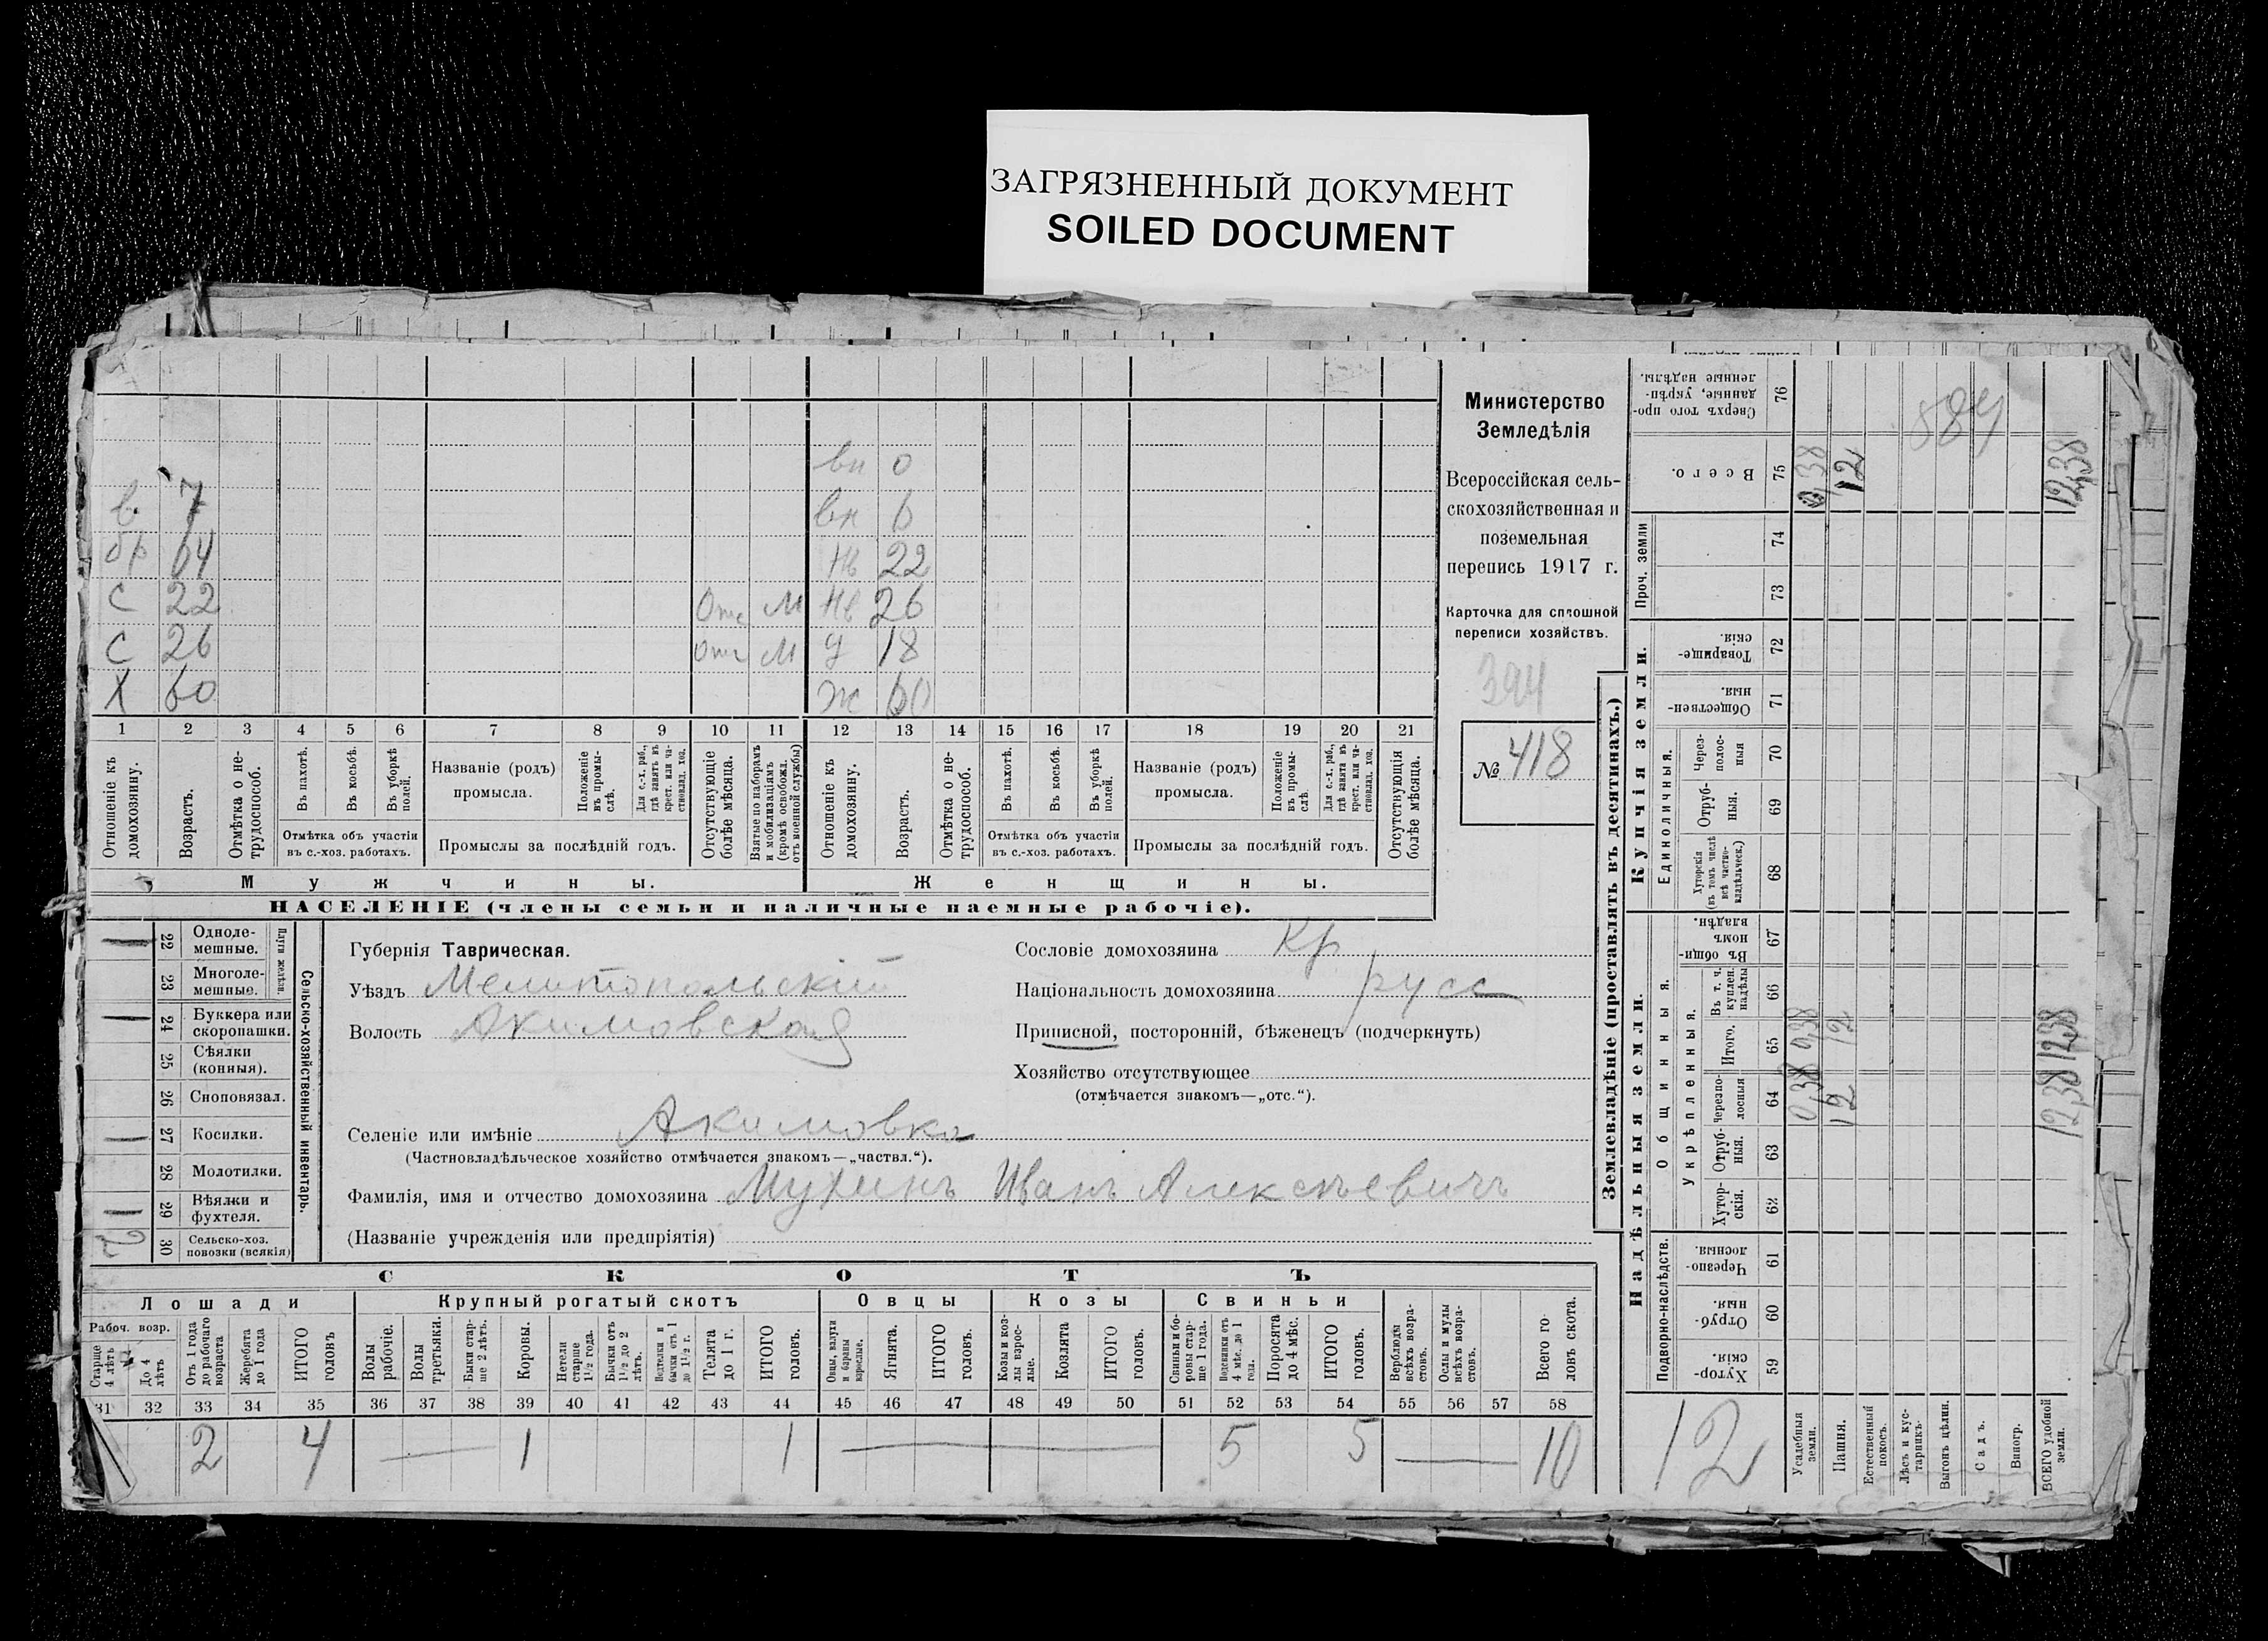 ЗАГРЯЗНЕННЫЙ ДОКУМЕНТ
SOILED DOCUMENT
вн 0
в. 7 вн 6
бр 64 нв 22
с 22 Отс М нв 26
с 26 отс М д 18
Х 60 ж 60
1 2 3 4 5 6 7 8 9 10 11 12 13 14 15 16 17 18 19 20 21
Отношеніе къ домохозяину.
Возрастъ.
Отмѣтка о нетрудоспособ.
Въ пахотѣ.
Въ косьбѣ.
Въ уборкѣ полей.
Отмѣтка объ участіи
въ с.-хоз. работахъ.
Названіе (родъ)
промысла.
Положеніе въ промыслѣ.
Для с.-х. раб., гдѣ занятъ въ крест. или частновлад. хоз.
Промыслы за послѣдній годъ.
Отсутствующіе болѣе мѣсяца.
Взятые по наборамъ и мобилизаціямъ (кромѣ освобожд. отъ военной службы)
Отношеніе къ домохозяину.
Возрастъ.
Отмѣтка о нетрудоспособ.
Въ пахотѣ.
Въ косьбѣ.
Въ уборкѣ полей.
Отмѣтка объ участіи
въ с.-хоз. работахъ.
Названіе (родъ)
промысла.
Положеніе въ промыслѣ.
Для с.-х. раб., гдѣ занята въ крест. или частновлад. хоз.
Промыслы за послѣдній годъ.
Отсутствующія болѣе мѣсяца.
Мужчины. Женщины.
НАСЕЛЕНІЕ (члены семьи и наличные наемные рабочіе).
Министерство
Земледѣлія
Всероссійская сель-
скохозяйственная и
поземельная
перепись 1917 г.
Карточка для сплошной
переписи хозяйствъ.
394
№ 418
22 Одноле-
мешные.
23 Многоле-
мешные.
Плуги желѣзн.
24 Буккера или
скоропашки.
25 Сѣялки
(конныя).
26 Сноповязал.
27 Косилки.
28 Молотилки.
29 Вѣялки и
фухтеля.
30 Сельско-хоз.
повозки (всякія)
2
Сельско-хозяйственный инвентарь.
Губернія Таврическая.
Уѣздъ Мелитопольскій
Волость Акимовская
Сословіе домохозяина Кр
Національность домохозяина русс
Приписной, посторонній, бѣженецъ (подчеркнуть)
Хозяйство отсутствующее
(отмѣчается знакомъ—„отс.“).
Селеніе или имѣніе Акимовка
(Частновладѣльческое хозяйство отмѣчается знакомъ—„частвл.“).
Фамилія, имя и отчество домохозяина Мухинъ Иванъ Алексѣевичъ
(Названіе учрежденія или предпріятія)
СКОТЪ
Лошади Крупный рогатый скотъ Овцы Козы Свиньи
Рабоч. возр.
Старше 4 лѣтъ
До 4 лѣтъ
Отъ 1 года до рабочаго возраста
Жеребята до 1 года
ИТОГО головъ
Волы рабочіе.
Волы третьяки.
Быки старше 2 лѣтъ.
Коровы.
Нетели старше 1½ года.
Бычки отъ 1½ до 2 лѣтъ.
Подтелки и бычки отъ 1 до 1½ г.
Телята до 1 г.
ИТОГО головъ.
Овцы, валухи и бараны взрослые.
Ягнята.
ИТОГО головъ.
Козы и козлы взрослые.
Козлята
ИТОГО головъ.
Свиньи и боровы старше 1 года.
Подсвинки отъ 4 мѣс. до 1 года.
Поросята до 4 мѣс.
ИТОГО головъ.
Верблюды всѣхъ возрастовъ.
Ослы и мулы всѣхъ возрастовъ.
Всего головъ скота.
31 32 33 34 35 36 37 38 39 40 41 42 43 44 45 46 47 48 49 50 51 52 53 54 55 56 57 58
2 4 — 1 1 — 5 5 — 10
Землевладѣніе (проставлять въ десятинахъ.)
Надѣльныя земли. Купчія земли. Проч. земли
Подворно-наслѣдств.
Общинныя.
Укрѣпленныя.
Единоличныя.
Хуторскія. 59
Отрубныя. 60
Черезполосныя. 61
Хуторскія. 62
Отрубныя. 63
Черезполосныя 64
Итого. 65
Въ т. ч. куплен. надѣлы 66
Въ общинномъ владѣн. 67
Хуторскія (въ томъ числѣ всѣ частновладѣльческ.) 68
Отрубныя. 69
Черезполосныя 70
Общественныя. 71
Товарищескія. 72
73
74
Всего. 75
Сверхъ того проданные, укрѣпленные надѣлы. 76
584
12
Усадебныя земли. 0,38 0,38 0,38
Пашня. 12 12 12
Естественный покосъ.
Лѣсъ и кустарникъ.
Выгонъ цѣлин.
Садъ.
Виногр.
ВСЕГО удобной земли. 12,38 12,38 12,38